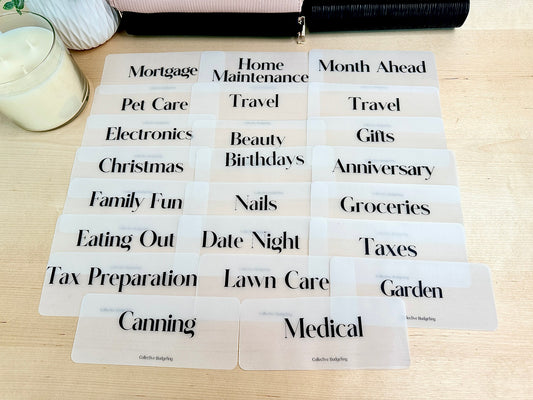 Mortgage
Home
Maintenance
Month Ahead
Pet Care
Travel
Travel
Electronics
Beauty
Gifts
Christmas
Birthdays
Anniversary
Family Fun
Nails
Groceries
Eating Out
Date Night
Taxes
Tax Preparation
Lawn Care
Garden
Canning
Medical
Collective Budgeting
Collective Budgeting
Collective Budgeting